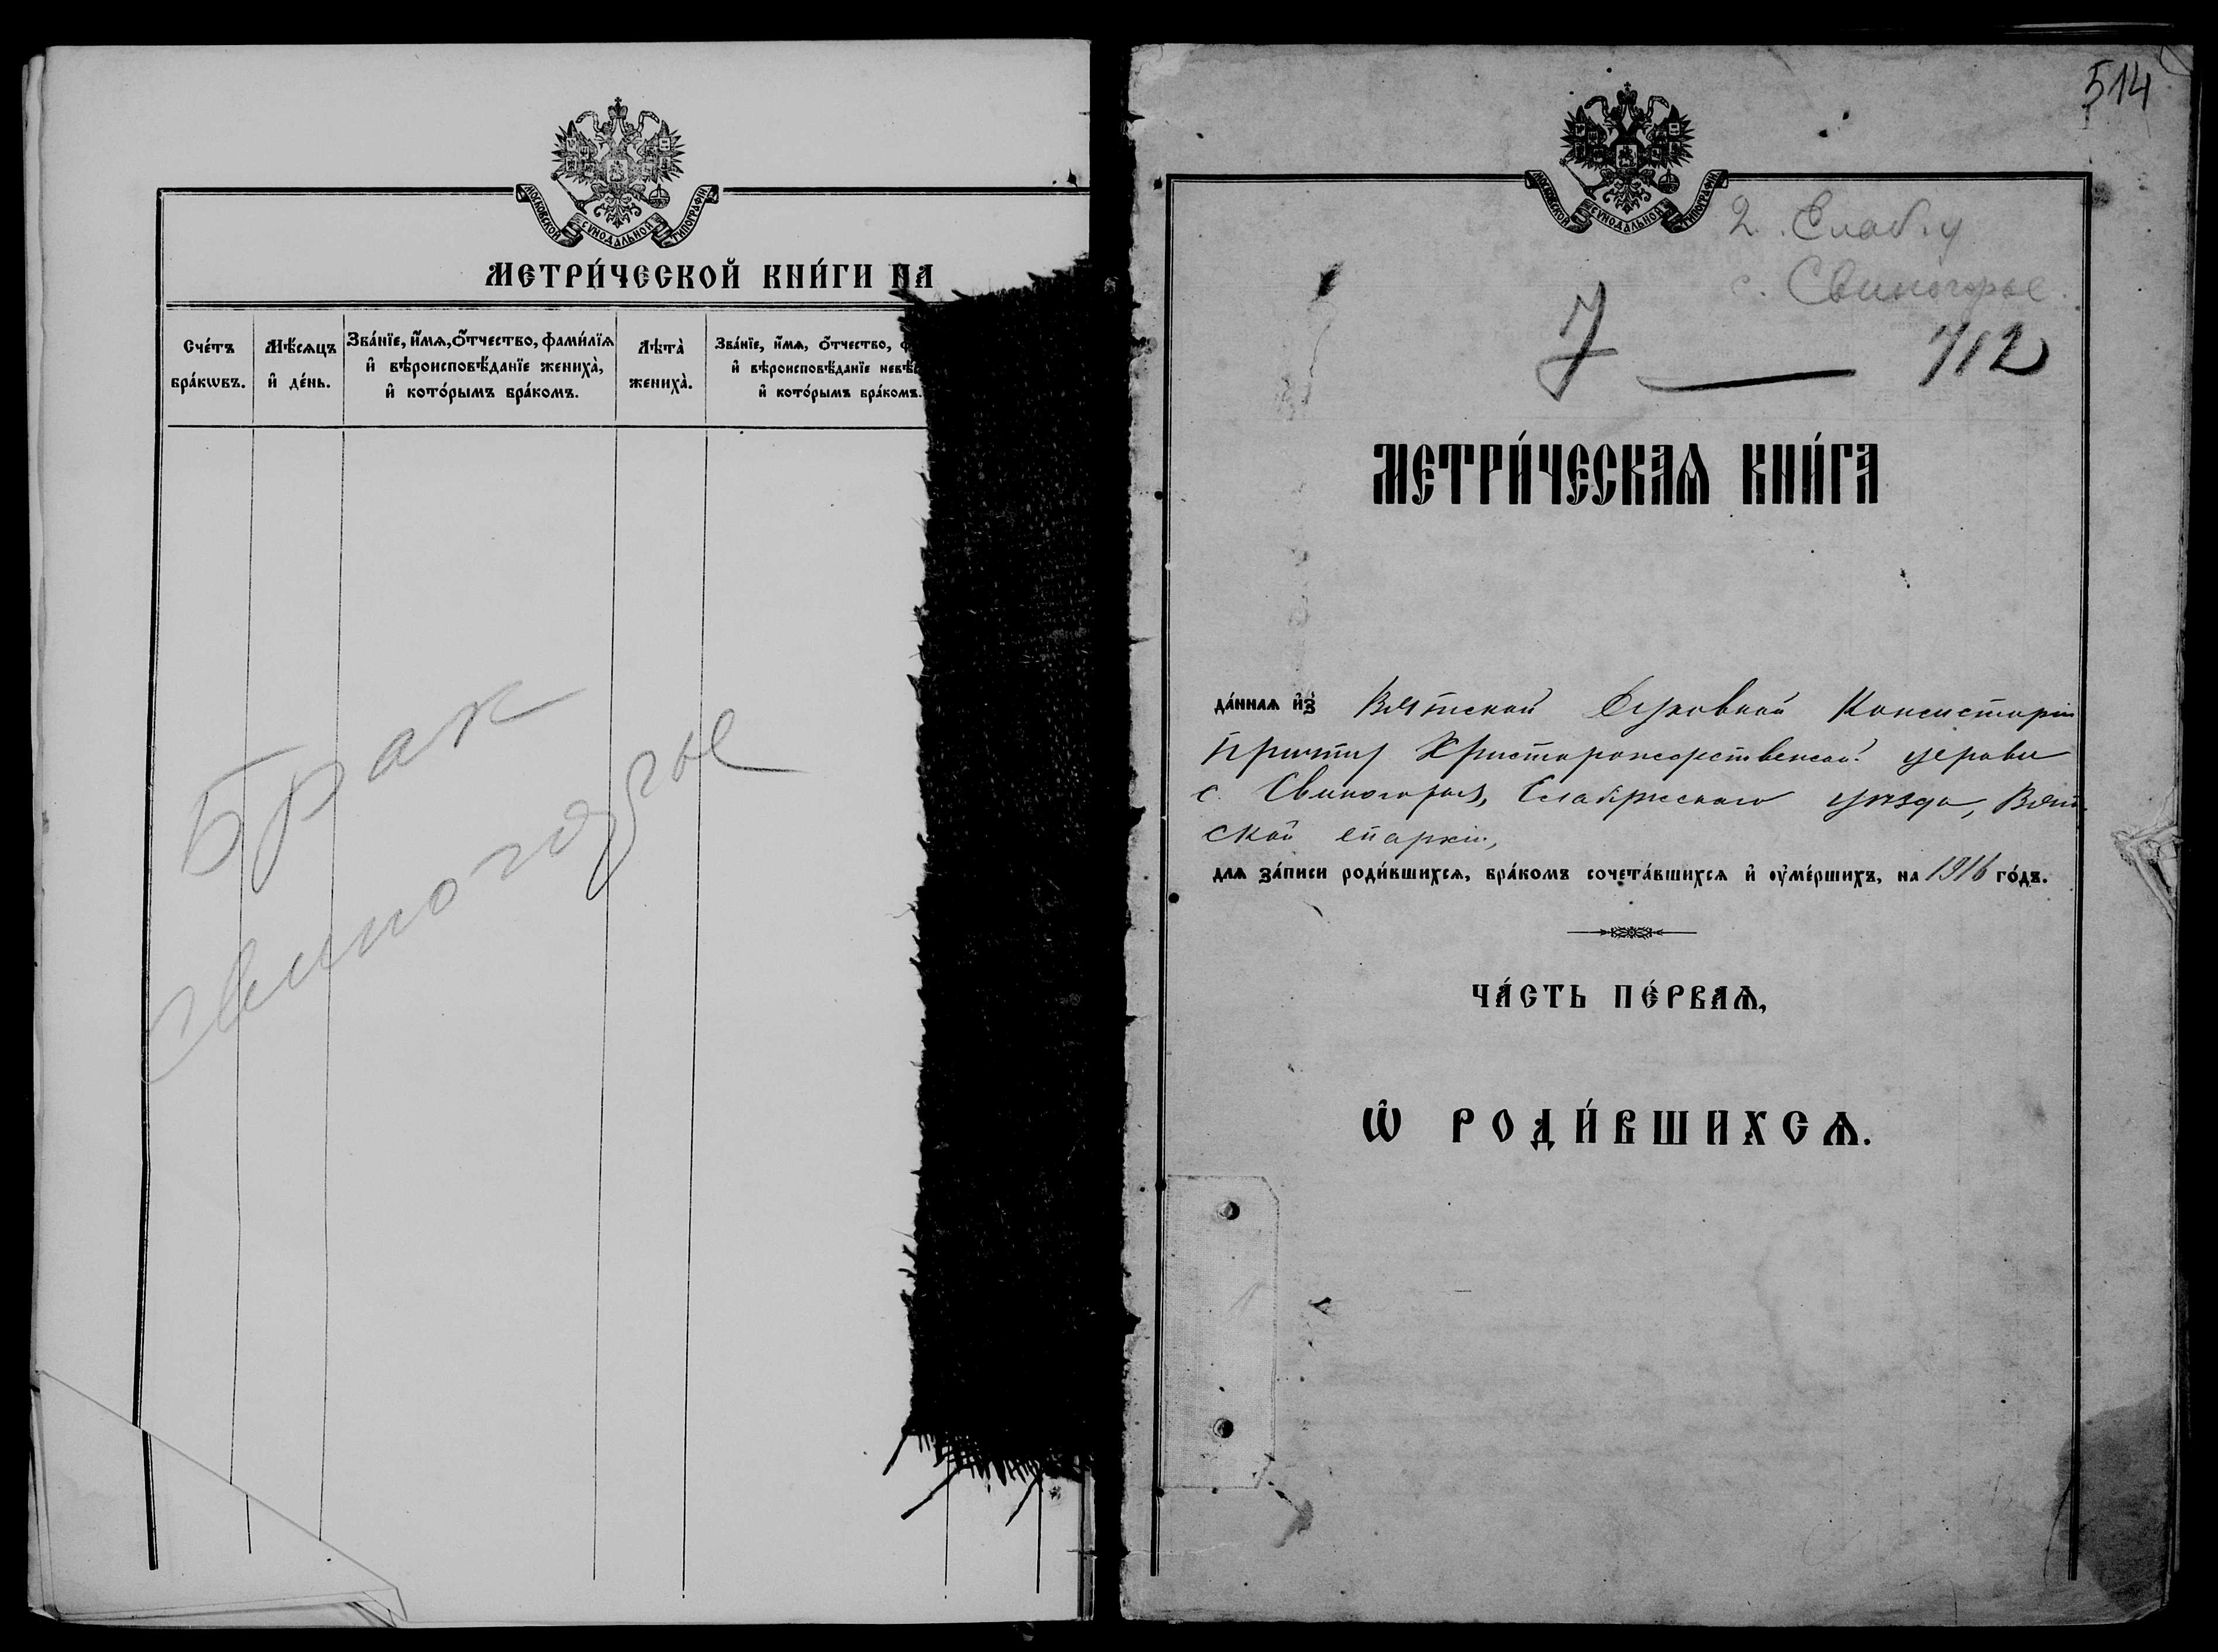 МОСКОВСКОЙ СѴНОДАЛЬНОЙ ТИПОГРАФІИ
МЕТРИ́ЧЕСКОЙ КНИ́ГИ НА
Сче́тъ бра́кѡвъ.
Мѣ́сѧцъ и҆ де́нь.
Зва́нїе, и҆́мѧ, ѻ҆́тчество, фами́лїѧ
и҆ вѣроисповѣ́данїе жениха̀,
и҆ кото́рымъ бра́комъ.
Лѣта̀ жениха̀.
Зва́нїе, и҆́мѧ, ѻ҆́тчество,
и҆ вѣроисповѣ́данїе невѣ́
и҆ кото́рымъ бра́комъ.
Брак
Свиногорье
514
МОСКОВСКОЙ СѴНОДАЛЬНОЙ ТИПОГРАФІИ
2. Елабу
с. Свиногорье.
7 — 712
МЕТРИ́ЧЕСКАѦ КНИ́ГА
да́ннаѧ и҆з̾ Вятской Духовной Консисторіи
причту Христорождественской церкви
с. Свиногорья, Елабужскаго уѣзда, Вят-
ской епархіи,
длѧ за́писи роди́вшихсѧ, бра́комъ сочета́вшихсѧ и҆ ᲂу҆ме́ршихъ, на 1916 го́дъ.
ЧА́СТЬ ПЕ́РВАѦ,
Ѽ РОДИ́ВШИХСѦ.